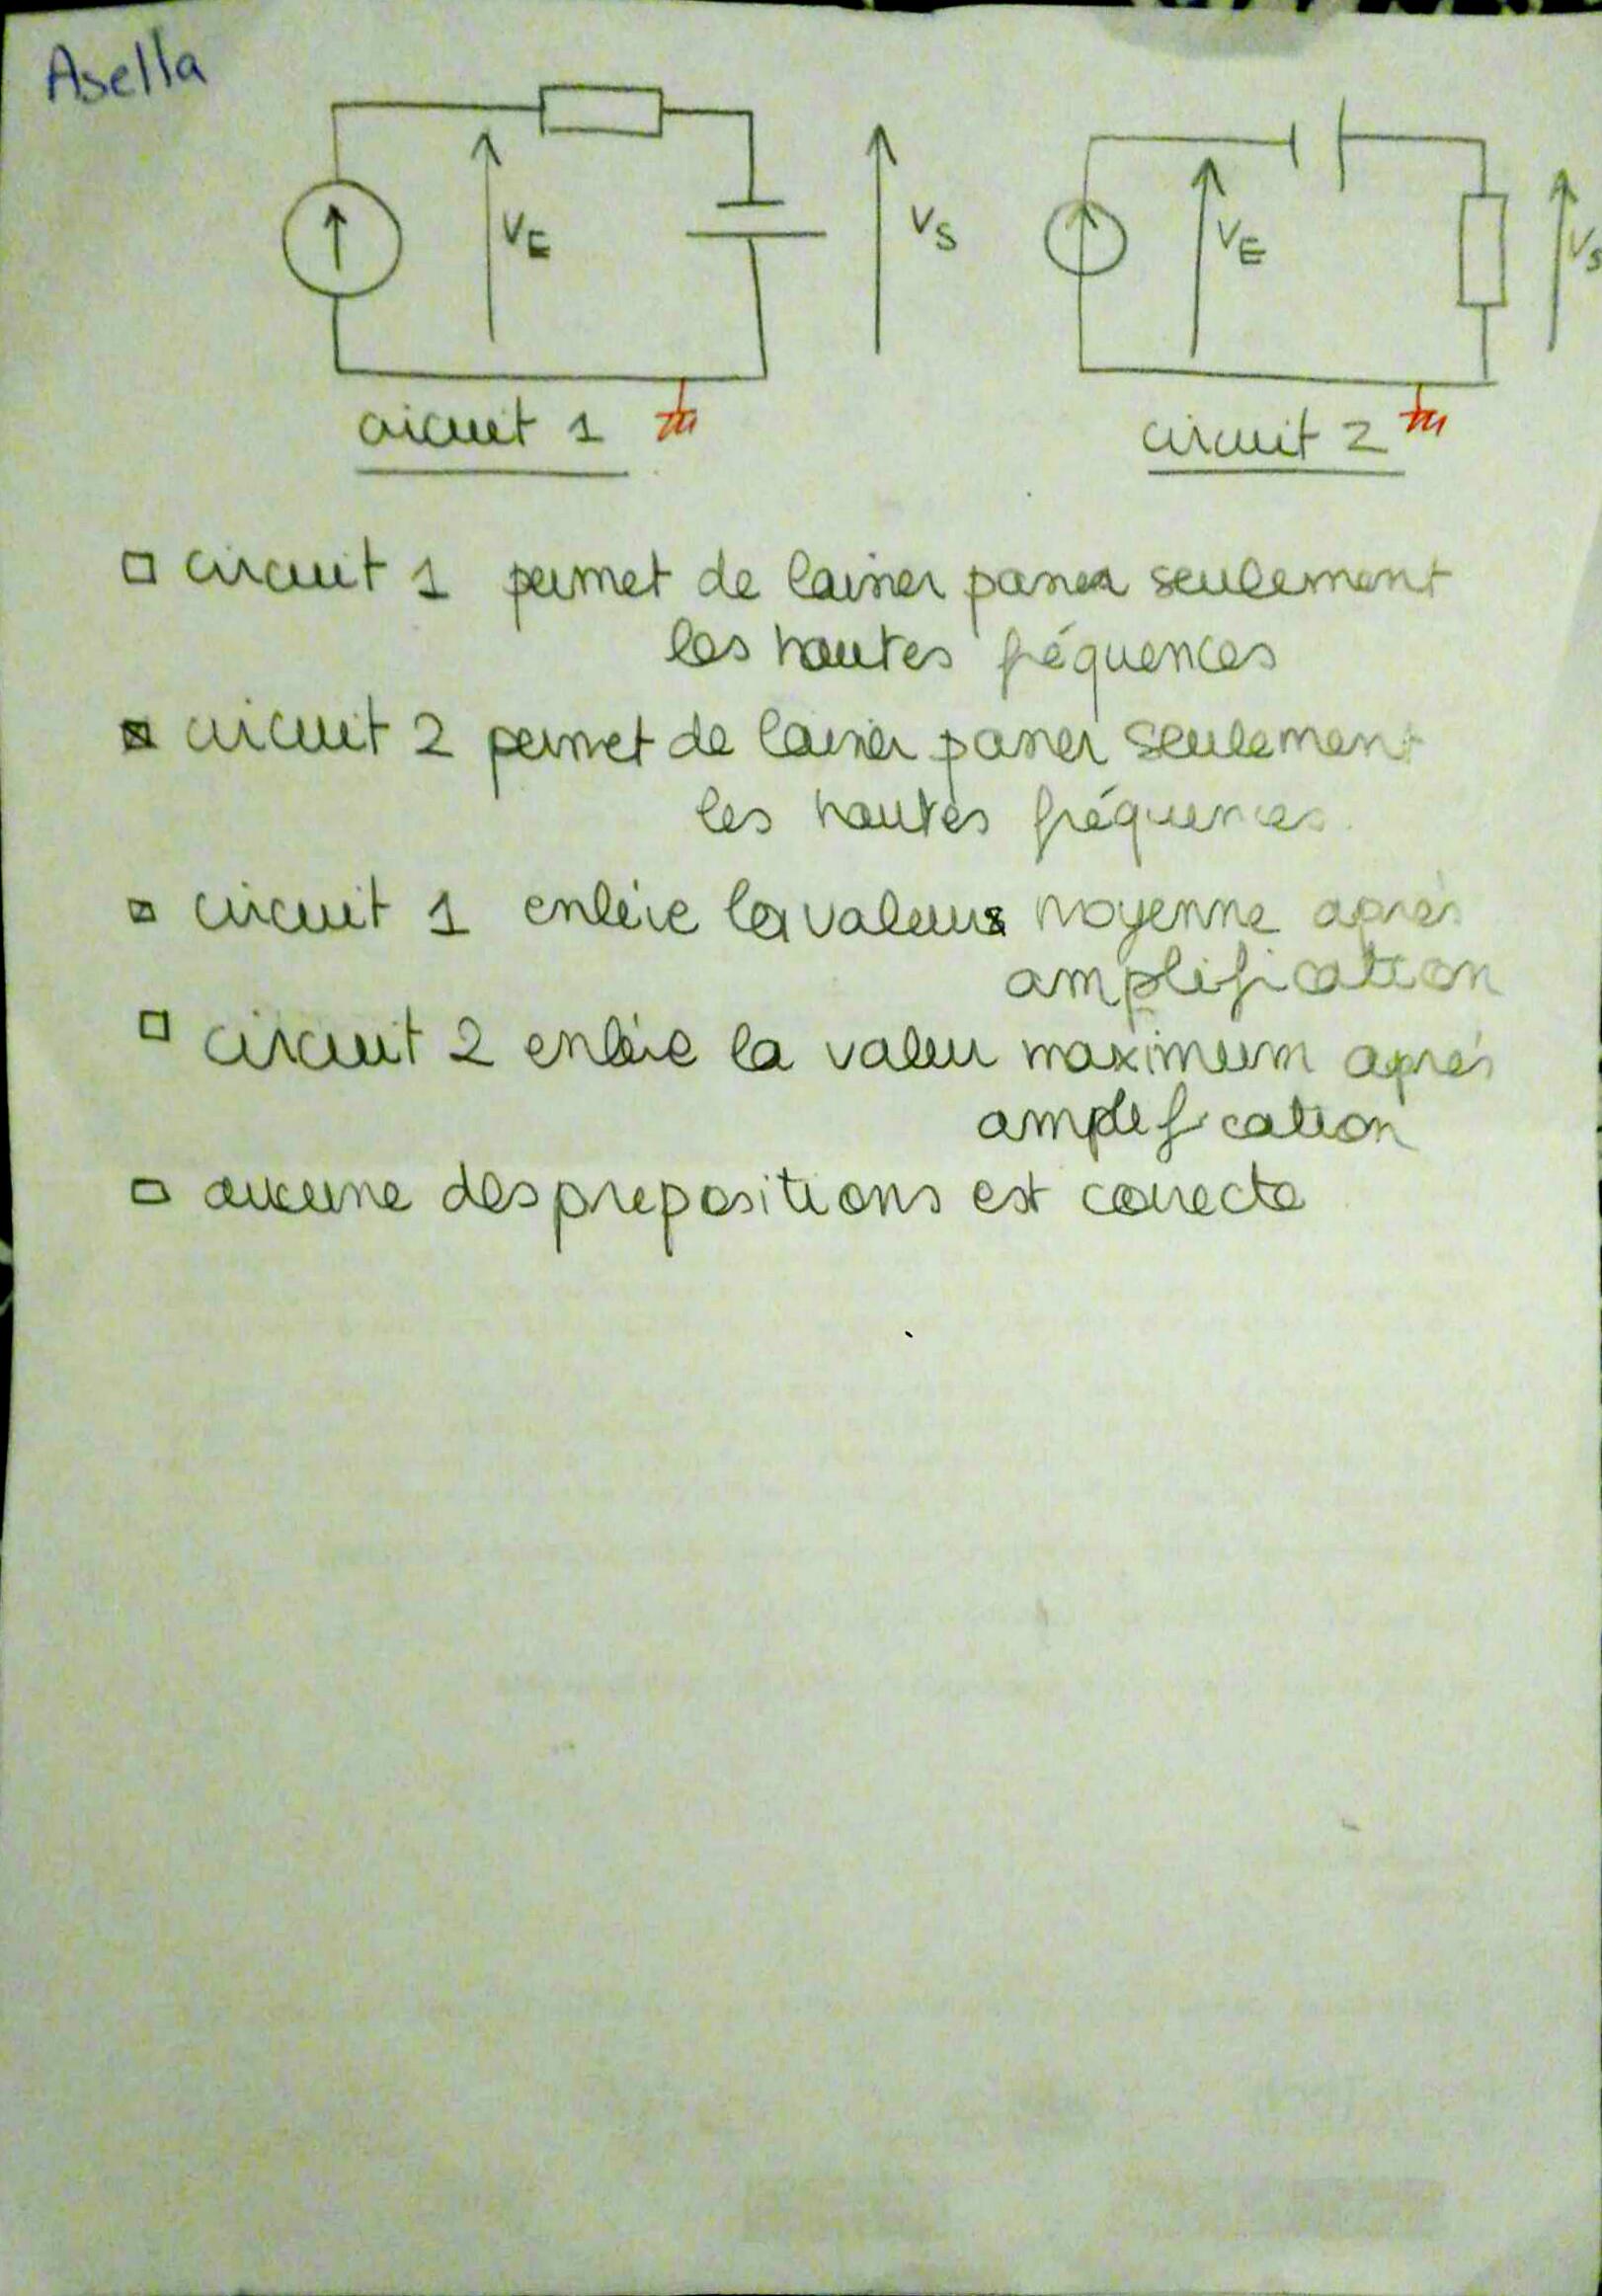 Asella
VE
VS
VE
VS
circuit 1
circuit 2
circuit 1 permet de laisser passer seulement
les hautes fréquences
circuit 2 permet de laisser passer seulement
les hautes fréquences.
circuit 1 enlève la valeur moyenne après
amplification
circuit 2 enlève la valeur maximum après
amplification
aucune des prepositions est correcte